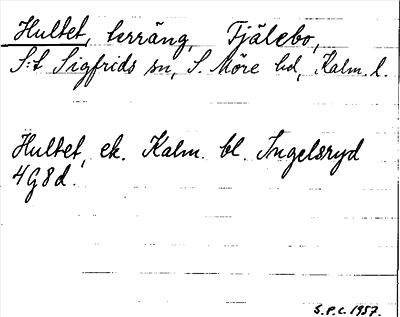 Hultet, terräng, Tjälebo,
S:t Sigfrids sn, S. Möre hd, Kalm. l.
Hultet, ek. Kalm. bl. Ingelsryd
4G8d.
S.P.C. 1957.